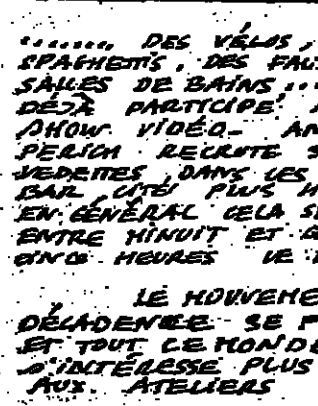 ....... DES VÉLOS,
SPAGHETTIS, DES FAU
SALLES DE BAINS...
DÉJÀ PARTICIPÉ
SHOW VIDÉO- AN
PERICH RECRUTE S
VEDETTES DANS LES
BAR, CITÉS PLUS H
EN GÉNÉRAL CELA S
ENTRE MINUIT ET
CINQ HEURES
LE MOUVEME
DÉCADENCE SE
ET TOUT LE MONDE
S'INTÉRESSE PLUS
AUX ATELIERS